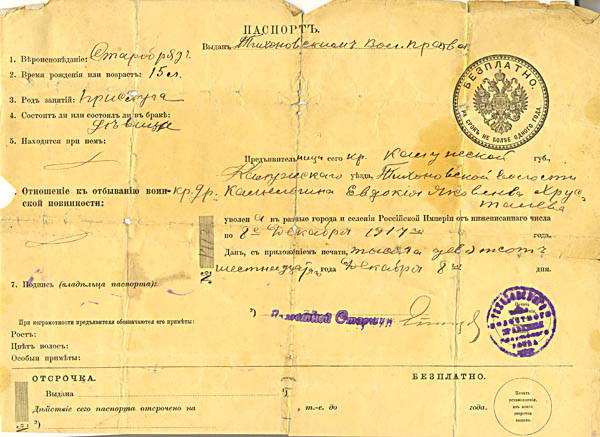 ПАСПОРТЪ.
Выданъ Тихоновскимъ Вол. Правл.
1. Вѣроисповѣданіе: Старообрядч.
2. Время рожденія или возрастъ: 15 л.
3. Родъ занятій: прислуга
4. Состоитъ ли или состоялъ ли въ бракѣ:
дѣвица
5. Находятся при немъ:
БЕЗПЛАТНО.
НА СРОКЪ НЕ БОЛѢЕ ОДНОГО ГОДА.
Предъявительница сего кр. Калужской губ.,
Калужскаго уѣзда, Тихоновской волости
Отношеніе къ отбыванію воин-
ской повинности:
кр. др. Евдокія Яковлева Хрус-
талева
уволена въ разные города и селенія Россійской Имперіи отъ нижеписаннаго числа
по 8е Декабря 1917го года.
Данъ, съ приложеніемъ печати, тысяча девятсотъ
шестнадцат. года Декабря 8 дня.
№
7. Подпись (владѣльца паспорта):
²) Волостной Старшина
При неграмотности предъявителя обозначаются его примѣты:
Ростъ:
Цвѣтъ волосъ:
Особыя примѣты:
ОТСРОЧКА.
БЕЗПЛАТНО.
Выдана
Дѣйствіе сего паспорта отсрочено на , т.-е. до года.
№ ²)
Печать
установленія,
изъ коего
отсрочка
выдана.